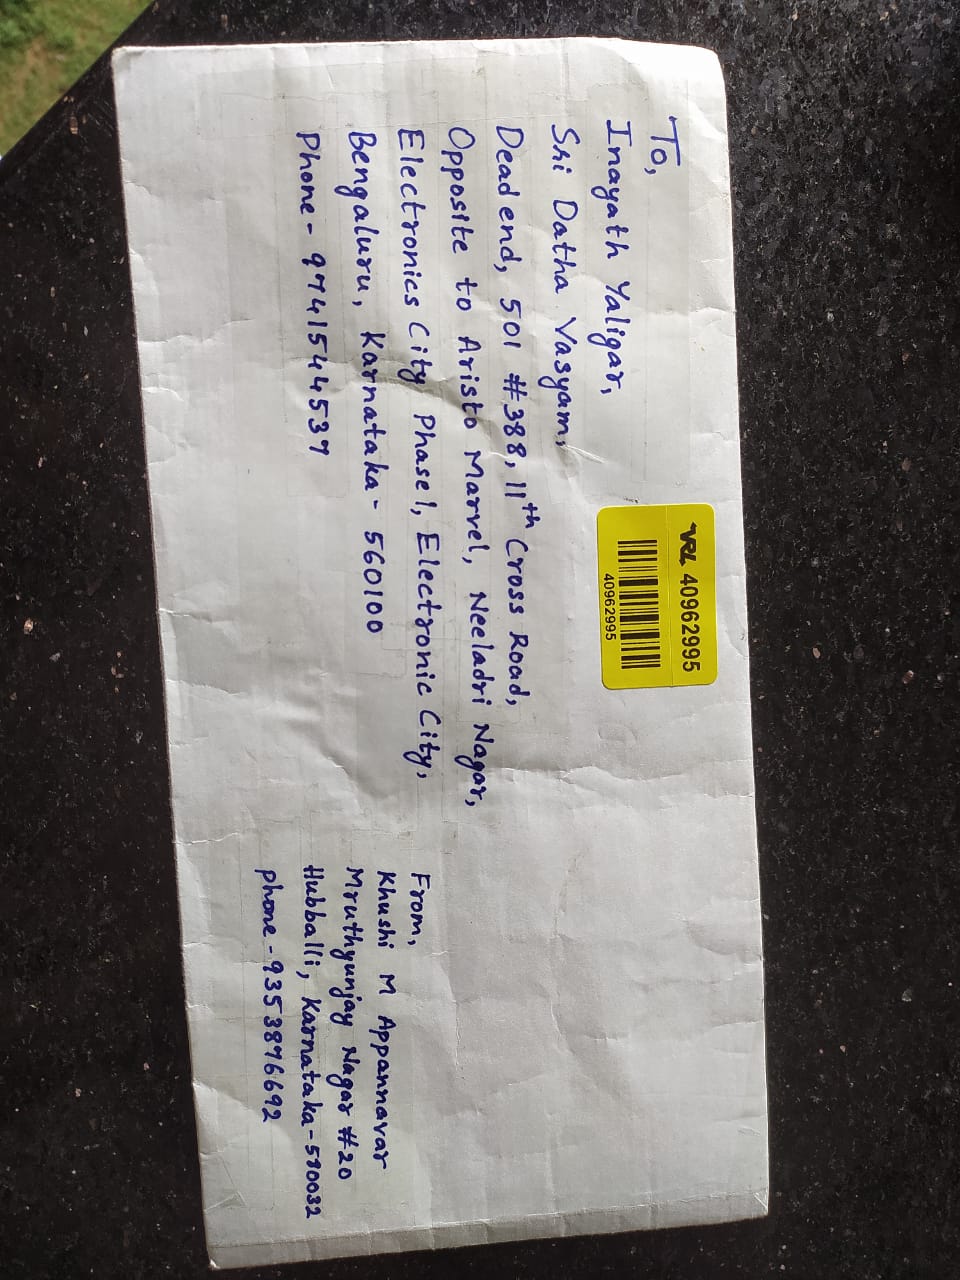 VRL 40962995
40962995
To,
Inayath Yaligar,
Sri Datha Vasyam,
Dead end, 501 #388, 11th Cross Road,
Opposite to Aristo Marvel, Neeladri Nagar,
Electronics City Phase 1, Electronic City,
Bengaluru, Karnataka - 560100
Phone - 9741544537
From,
Khushi M Appannavar
Mruthyunjay Nagar #20
Hubballi, Karnataka - 580032
phone - 9353876692